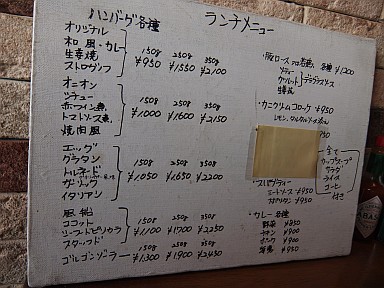 ランチメニュー
ハンバーグ各種
オリジナル
和風・カレー
生姜焼
ストロガノフ
150g 250g 350g
¥950 ¥1550 ¥2100
オニオン
シチュー
赤ワイン煮
トマトソース煮
焼肉風
150g 250g 350g
¥1000 ¥1600 ¥2150
エッグ
グラタン
トルネード
ガーリック
イタリアン
150g 250g 350g
¥1050 ¥1650 ¥2200
ココット
150g 250g 350g
¥1100 ¥1700 ¥2250
ゴルゴンゾーラ
150g 250g 350g
¥1300 ¥1900 ¥2450
各種 ¥1200
ソティー
デミグラスソース
生姜
・カニクリームコロッケ ¥950
全て
カップスープ
サラダ
ライス
コーヒー
付き
・スパゲティー
ミートソース ¥950
ナポリタン ¥950
・カレー各種
野菜 ¥950
チキン ¥900
ポーク ¥900
¥950